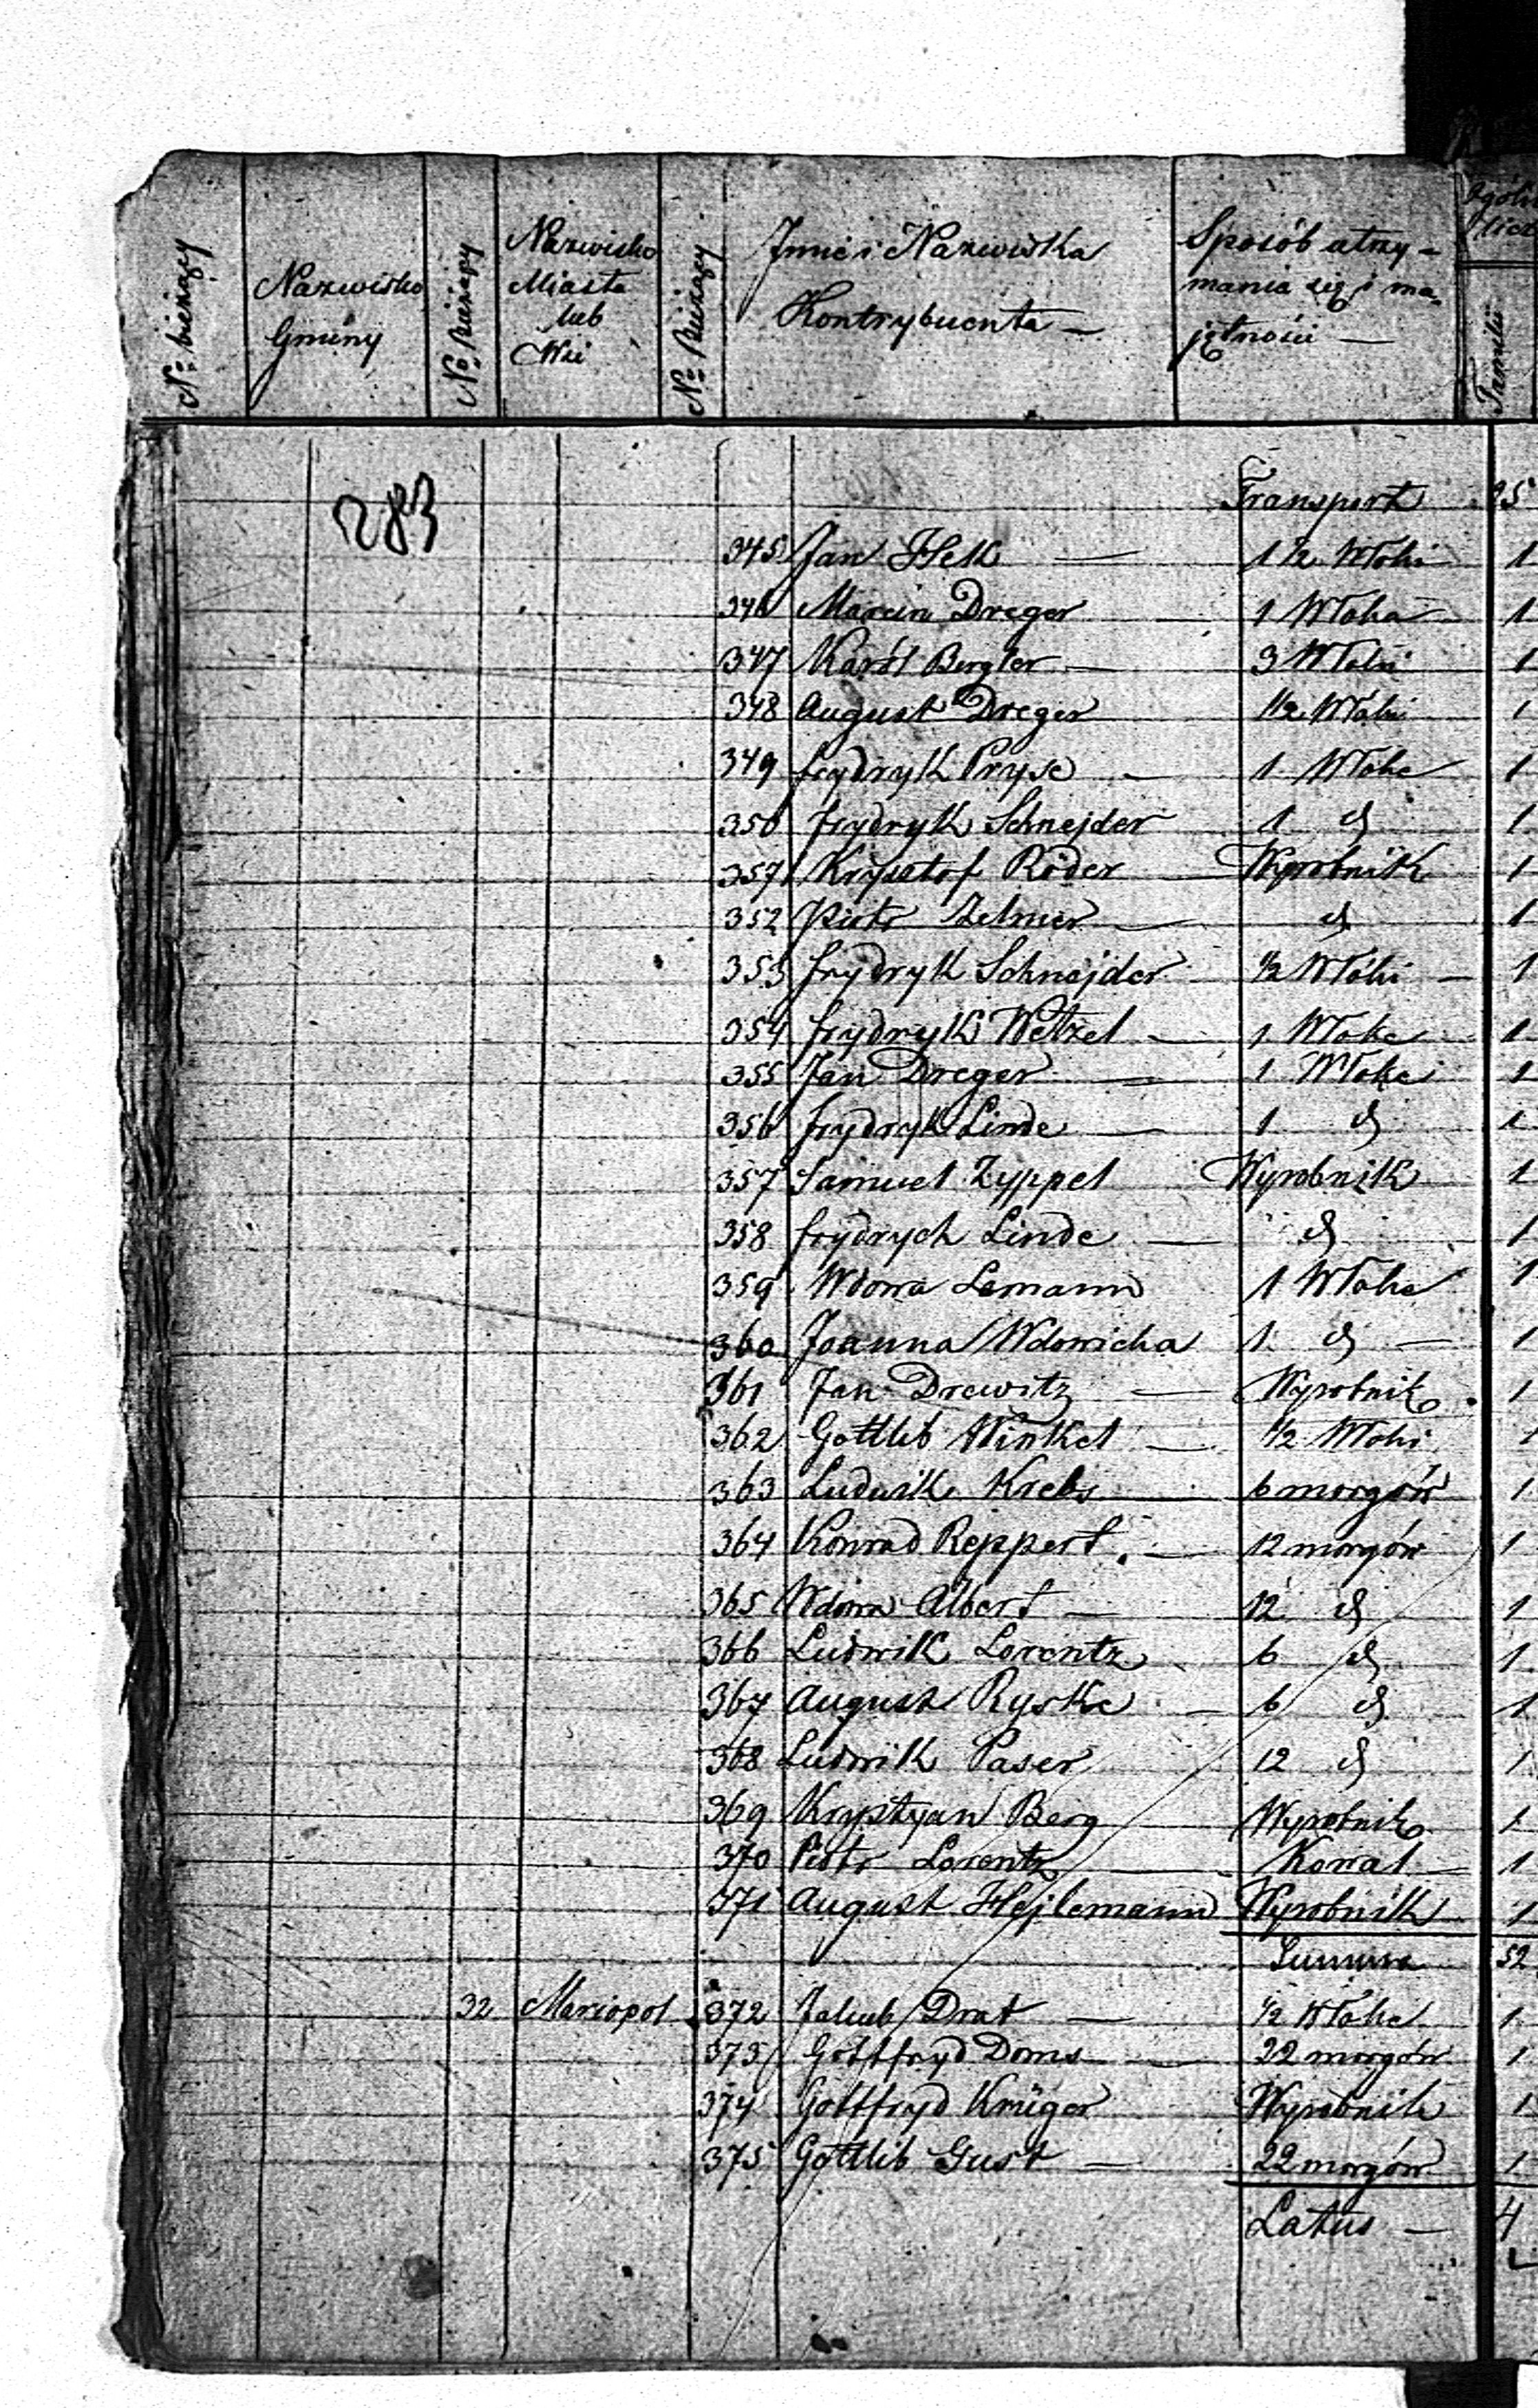 No bieżący
Nazwisko
Gminy
No Bieżący
Nazwisko
Miasta
lub
Wsi
No Bieżący
Jmie i Nazwiska
Kontrybuenta —
Sposób utrzy-
mania się i ma-
jętności —
Ogóln
licz
Familii
283
Transport 25
345 Jan Helk — 1 1/2 Włoki 1
346 Marcin Dreger 1 Włoka 1
347 Karól Bergler — 3 Włoki 1
348 August Dreger 1 1/2 Włoki 1
349 frydryk Pryse — 1 Włoke 1
350 frydryk Schnejder 1 d 1
351 Krysztof Röder — Wyrobnik 1
352 Piotr Zelmer — d 1
353 frydryk Schnejder 1/2 Włoki — 1
354 frydryk Wetzel — 1 Włoke 1
355 Jan Dreger — 1 Włoke 1
356 frydryk Linde — 1 d 1
357 Samuel Zyppel Wyrobnik 1
358 frydrych Linde — d 1
359 Wdowa Lemann 1 Włoke 1
360 Joanna Wdowicha 1 d — 1
361 Jan Drewitz — Wyrobnik 1
362 Gottlib Winkel — 1/2 Włoki 1
363 Ludwik Krebs — 6 morgów 1
364 Konrad Reppert — 12 morgów 1
365 Wdowa Albert — 12 d 1
366 Ludwik Lorentz 6 d 1
367 August Ryske — 6 d 1
368 Ludwik Paser 12 d 1
369 Krystyan Berg Wyrobnik 1
370 Piotr Lorentz — Kowal — 1
371 August Hejlemann Wyrobnik 1
Summa 52
32 Mariopol 372 Jakub Drat — 1/2 Włoke 1
373 Gottfryd Doms — 22 morgów 1
374 Gottfryd Krüger Wyrobnik 1
375 Gottlib Gust — 22 morgów 1
Latus — 4